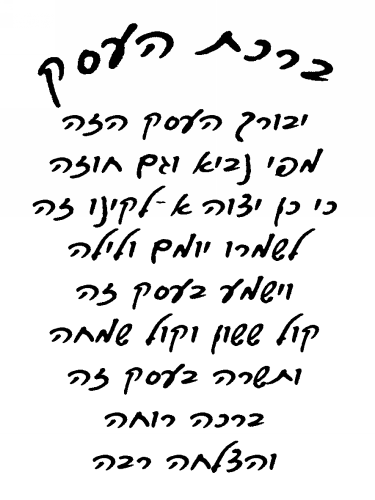 ברכת העסק
יבורך העסק הזה
מפי נביא וגם חוזה
כי כן יצווה א-לקינו זה
לשמרו יומם ולילה
וישמע בעסק זה
קול ששון וקול שמחה
ותשרה בעסק זה
ברכה רוחה
והצלחה רבה